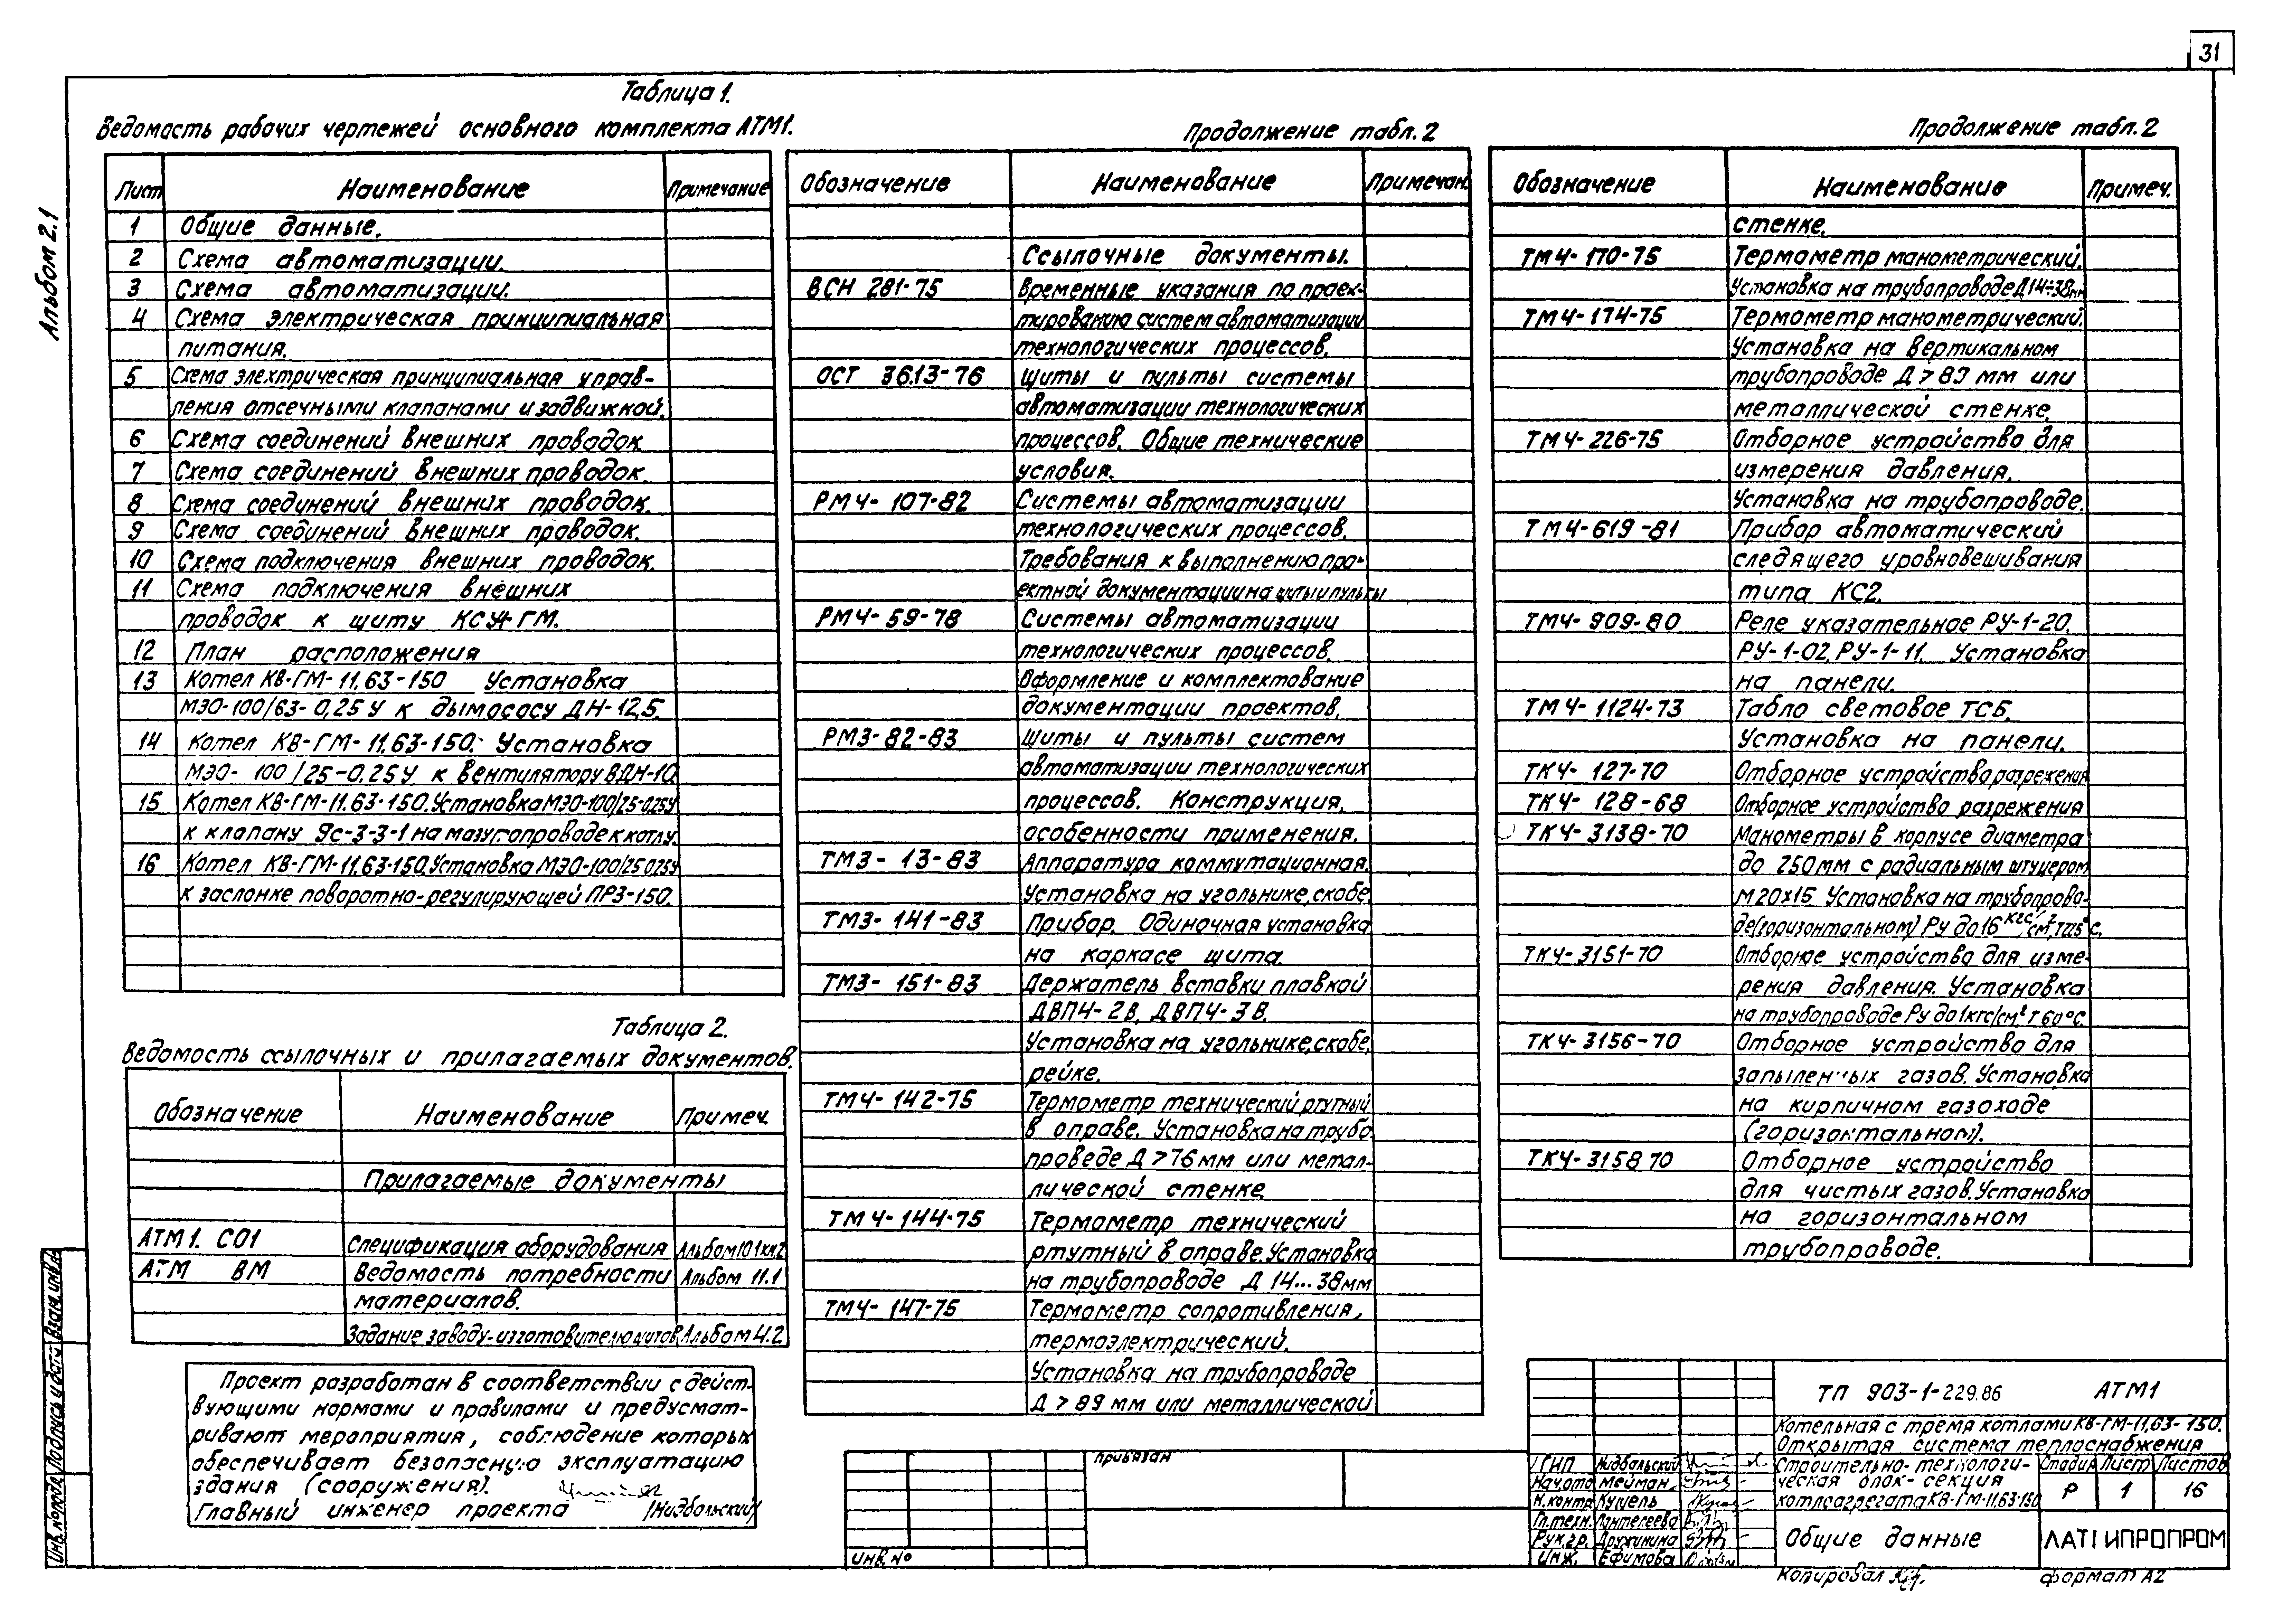 31
Альбом 2.1
Таблица 1.
Ведомость рабочих чертежей основного комплекта АТМ1.
Лист Наименование Примечание
1 Общие данные.
2 Схема автоматизации.
3 Схема автоматизации.
4 Схема электрическая принципиальная
питания.
5 Схема электрическая принципиальная управ-
ления отсечными клапанами и задвижкой.
6 Схема соединений внешних проводок.
7 Схема соединений внешних проводок.
8 Схема соединений внешних проводок.
9 Схема соединений внешних проводок.
10 Схема подключения внешних проводок.
11 Схема подключения внешних
проводок к щиту КСУ-ГМ.
12 План расположения
13 Котел КВ-ГМ-11,63-150 Установка
МЭО-100/63-0,25У к дымососу ДН-12,5.
14 Котел КВ-ГМ-11,63-150. Установка
МЭО-100/25-0.25У к вентилятору ВДН-10
15 Котел КВ-ГМ-11.63-150. Установка МЭО-100/25-0,25У
к клапану 9с-3-3-1 на мазутопроводе к котлу.
16 Котел КВ-ГМ-11,63-150. Установка МЭО-100/25 0,25У
к заслонке поворотно-регулирующей ПРЗ-150.
Таблица 2.
Ведомость ссылочных и прилагаемых документов.
Обозначение Наименование Примеч.
Прилагаемые документы
АТМ1. СО1 Спецификация оборудования Альбом 10.1 кн.2
АТМ ВМ Ведомость потребности Альбом 11.1
материалов.
Задание заводу-изготовителю щитов Альбом 4.2
Проект разработан в соответствии с дейст-
вующими нормами и правилами и предусмат-
ривают мероприятия, соблюдение которых
обеспечивает безопасную эксплуатацию
здания (сооружения).
Главный инженер проекта /Нидбальский/
Продолжение табл. 2
Обозначение Наименование Примечан.
Ссылочные документы.
ВСН 281-75 Временные указания по проек-
тированию систем автоматизации
технологических процессов.
ОСТ 36.13-76 Щиты и пульты системы
автоматизации технологических
процессов. Общие технические
условия.
РМ4-107-82 Системы автоматизации
технологических процессов.
Требования к выполнению про-
ектной документации на щиты и пульты
РМ4-59-78 Системы автоматизации
технологических процессов.
Оформление и комплектование
документации проектов.
РМ3-82-83 Щиты и пульты систем
автоматизации технологических
процессов. Конструкция,
особенности применения.
ТМ3-13-83 Аппаратура коммутационная.
Установка на угольнике, скобе
ТМ3-141-83 Прибор. Одиночная установка
на каркасе щита.
ТМ3-151-83 Держатель вставки плавкой
ДВП4-2В, ДВП4-3В.
Установка на угольнике, скобе,
рейке.
ТМ4-142-75 Термометр технический ртутный
в оправе. Установка на трубо-
проведе Д>76 мм или метал-
лической стенке
ТМ4-144-75 Термометр технический
ртутный в оправе. Установка
на трубопроводе Д 14...38мм
ТМ4-147-75 Термометр сопротивления,
термоэлектрический.
Установка на трубопроводе
Д > 89 мм или металлической
Продолжение табл. 2
Обозначение Наименование Примеч.
стенке.
ТМ4-170-75 Термометр манометрический.
Установка на трубопроводе Д14÷38мм
ТМ4-174-75 Термометр манометрический.
Установка на вертикальном
трубопроводе Д > 89 мм или
металлической стенке.
ТМ4-226-75 Отборное устройство для
измерения давления.
Установка на трубопроводе.
ТМ4-619-81 Прибор автоматический
следящего уровновешивания
типа КС2.
ТМ4-909-80 Реле указательное РУ-1-20,
РУ-1-02, РУ-1-11. Установка
на панели.
ТМ4-1124-73 Табло световое ТСБ.
Установка на панели.
ТК4-127-70 Отборное устройство разрежения
ТК4-128-68 Отборное устройство разрежения
ТК4-3138-70 Манометры в корпусе диаметра
до 250мм с радиальным штуцером
М20х15 Установка на трубопрово-
де (горизонтальном) Ру до 16 кгс/см², Т225°С.
ТК4-3151-70 Отборное устройство для изме-
рения давления. Установка
на трубопроводе Ру до 1кгс/см² Т 60°С.
ТК4-3156-70 Отборное устройство для
запыленных газов. Установка
на кирпичном газоходе
(горизонтальном).
ТК4-3158 70 Отборное устройство
для чистых газов. Установка
на горизонтальном
трубопроводе.
Привязан
Инв. №
ТП 903-1-229.86 АТМ1
Котельная с тремя котлами КВ-ГМ-11,63-150.
Открытая система теплоснабжения
ГИП Нидбальский
Нач.отд Мейман
Н.контр Кушель
Гл.техн. Пантелеева
Рук.гр. Дружинина
Инж. Ефимова
Строительно-технологи-
ческая блок-секция
котлоагрегата КВ-ГМ-11,63-150
Стадия Лист Листов
Р 1 16
Общие данные
ЛАТГИПРОПРОМ
Копировал
формат А2
Взам.инв.№
Подпись и дата
Инв.№ подл.